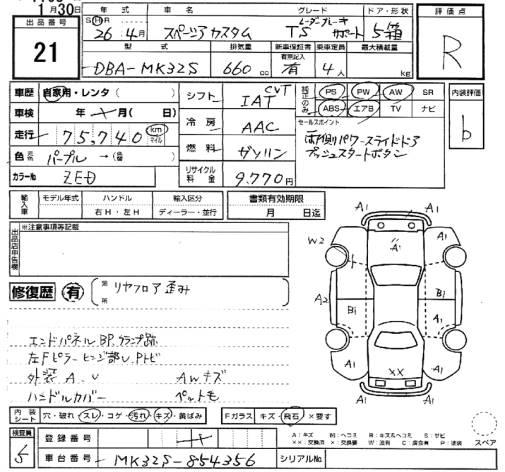 11月30日
出品番号
21
年式 車名 グレード ドア・形状
SH 26年4月 スペーシアカスタム TS レーダーブレーキサポート 5箱
型式 排気量 新車保証書 有無記入 乗車定員 最大積載量
DBA-MK32S 660cc 有 4人 kg
評価点
R
車歴 自家用・レンタ( )
車検 年 月( 日)
走行 75,740 km マイル
色 パープル →( )
カラーNo ZED
シフト CVT IAT
冷房 AAC
燃料 ガソリン
リサイクル料金 9,770円
純正のみ PS PW AW SR
ABS エアB TV ナビ
内装評価
b
セールスポイント
両側パワースライドドア
プッシュスタートボタン
輸入車 モデル年式 ハンドル 輸入区分
右H・左H ディーラー・並行
書類有効期限
月 日迄
出品店申告欄
※注意事項等記載
修復歴 有 箇所 リヤフロア歪み
エンドパネルBP、クランプ跡
左Fピラーヒンジ部 Pトビ
外装A.U AWキズ
ハンドルカバー ペット毛
A1
W2 A1 A1
A2 B1 B1
A1 A1
XX
A1 A1
A1
内装シート 穴・破れ・スレ・コゲ・汚れ・キズ・黄ばみ
Fガラス キズ・飛石・×要す
検査員
登録番号
車台番号 MK32S-854356 シリアルNo
A:キズ M:ヘコミ B:キズ&ヘコミ S:サビ
××:交換済 ×:交換要 W:波有 C:腐食有 P:塗装
スペア